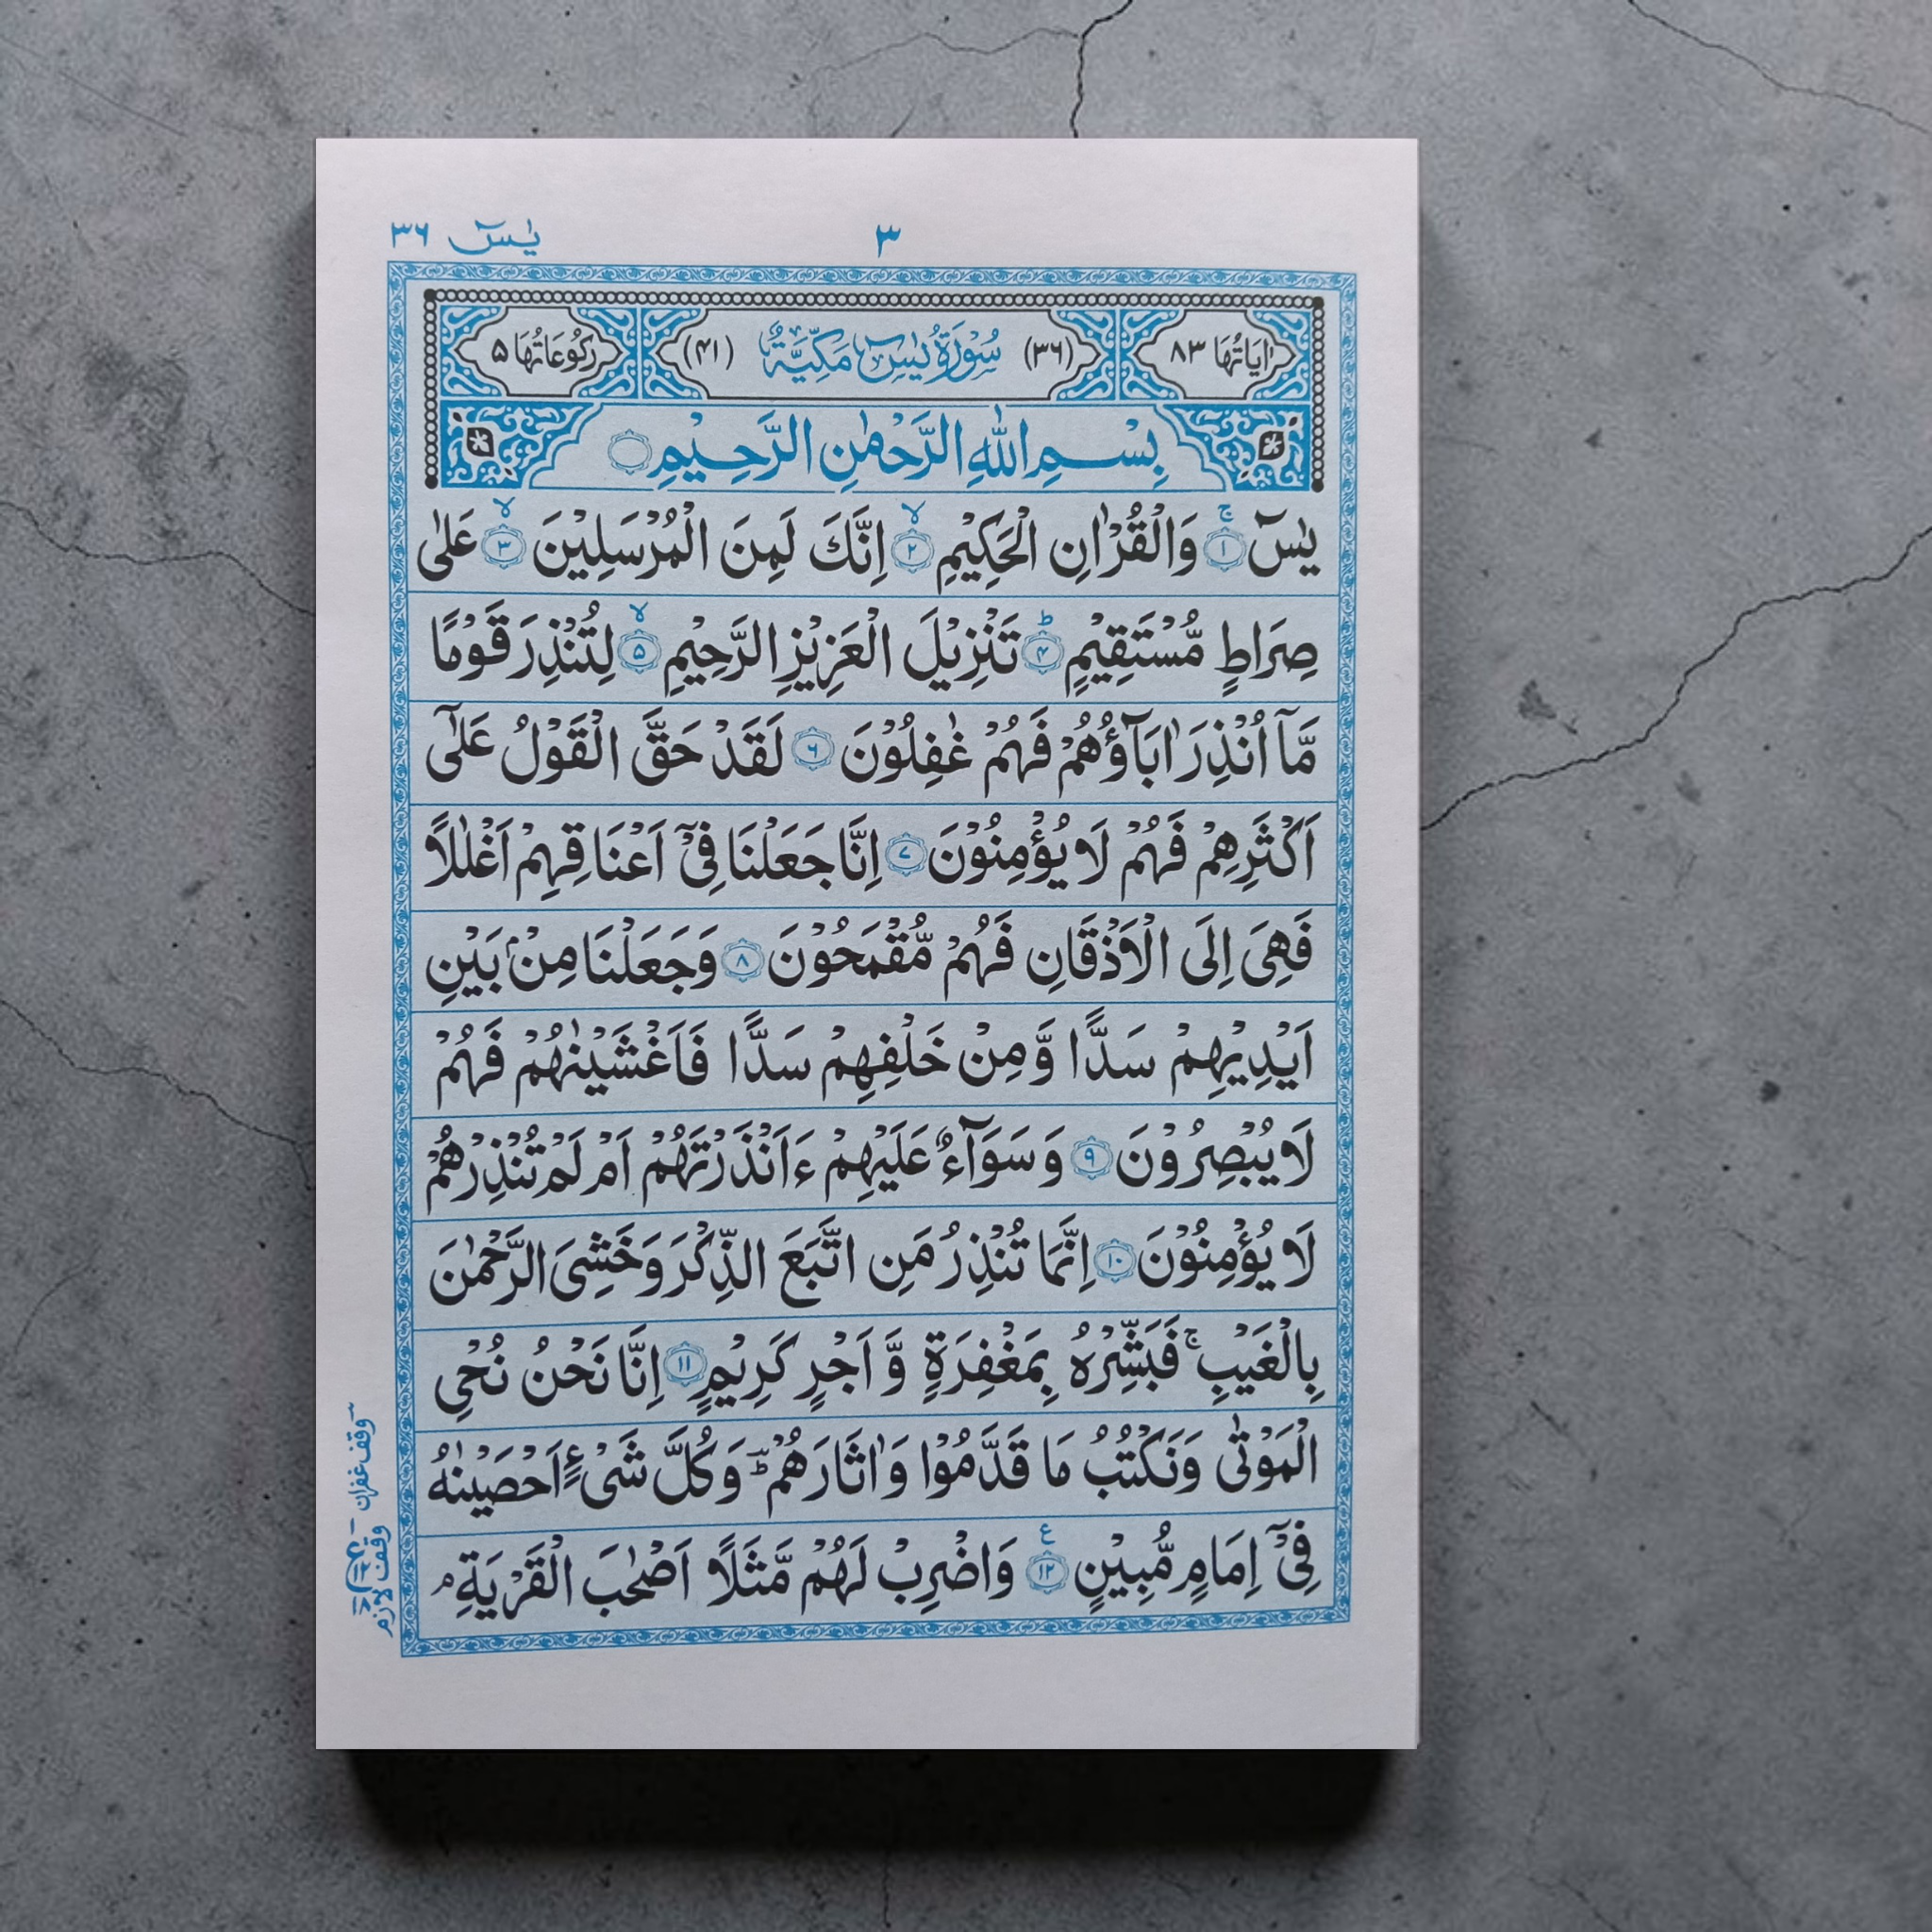 یٰسٓ ٣٦
٣
اٰیَاتُهَا ٨٣ (٣٦) سُوْرَةُ یٰسٓ مَكِّیَّةٌ (٤١) رُكُوْعَاتُهَا ٥
بِسْمِ اللّٰهِ الرَّحْمٰنِ الرَّحِیْمِ
یٰسٓ ۚ ﴿١﴾ وَالْقُرْاٰنِ الْحَكِیْمِ ۙ ﴿٢﴾ اِنَّكَ لَمِنَ الْمُرْسَلِیْنَ ۙ ﴿٣﴾ عَلٰی
صِرَاطٍ مُّسْتَقِیْمٍ ؕ ﴿۴﴾ تَنْزِیْلَ الْعَزِیْزِ الرَّحِیْمِ ۙ ﴿۵﴾ لِتُنْذِرَ قَوْمًا
مَّاۤ اُنْذِرَ اٰبَآؤُهُمْ فَهُمْ غٰفِلُوْنَ ﴿۶﴾ لَقَدْ حَقَّ الْقَوْلُ عَلٰۤی
اَكْثَرِهِمْ فَهُمْ لَا یُؤْمِنُوْنَ ﴿٧﴾ اِنَّا جَعَلْنَا فِیْۤ اَعْنَاقِهِمْ اَغْلٰلًا
فَهِیَ اِلَی الْاَذْقَانِ فَهُمْ مُّقْمَحُوْنَ ﴿٨﴾ وَجَعَلْنَا مِنْۢ بَیْنِ
اَیْدِیْهِمْ سَدًّا وَّمِنْ خَلْفِهِمْ سَدًّا فَاَغْشَیْنٰهُمْ فَهُمْ
لَا یُبْصِرُوْنَ ﴿٩﴾ وَسَوَآءٌ عَلَیْهِمْ ءَاَنْذَرْتَهُمْ اَمْ لَمْ تُنْذِرْهُمْ
لَا یُؤْمِنُوْنَ ﴿١٠﴾ اِنَّمَا تُنْذِرُ مَنِ اتَّبَعَ الذِّكْرَ وَخَشِیَ الرَّحْمٰنَ
بِالْغَیْبِ ۚ فَبَشِّرْهُ بِمَغْفِرَةٍ وَّاَجْرٍ كَرِیْمٍ ﴿١١﴾ اِنَّا نَحْنُ نُحْیِ
الْمَوْتٰی وَنَكْتُبُ مَا قَدَّمُوْا وَاٰثَارَهُمْ ؕ وَكُلَّ شَیْءٍ اَحْصَیْنٰهُ
فِیْۤ اِمَامٍ مُّبِیْنٍ ﴿١٢﴾ ع وَاضْرِبْ لَهُمْ مَّثَلًا اَصْحٰبَ الْقَرْیَةِ ۘ
وقف غفران
وقف لازم